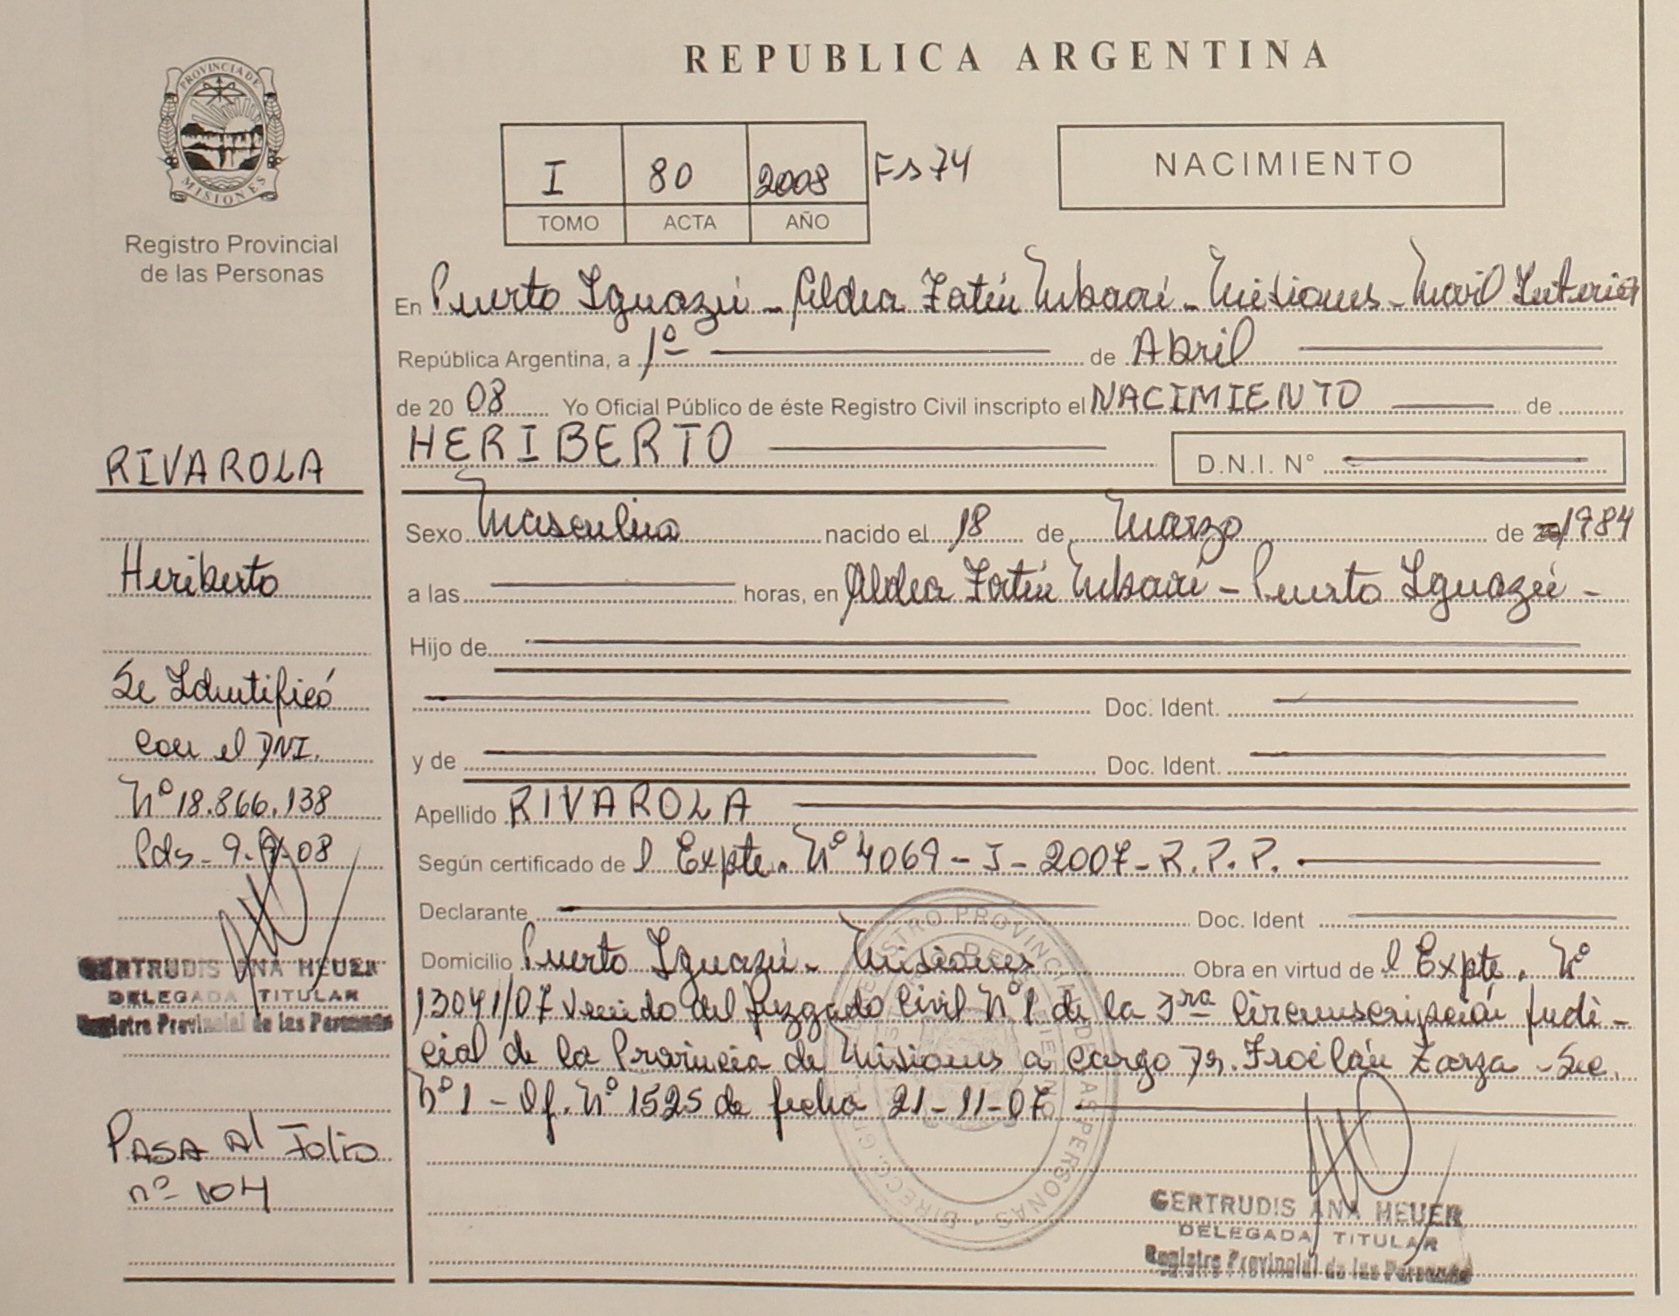 REPUBLICA ARGENTINA
PROVINCIA DE
MISIONES
Registro Provincial
de las Personas
I 80 2008 Fs 74
TOMO ACTA AÑO
NACIMIENTO
En Puerto Iguazú - Aldea Fortín Mbororé - Misiones - Movil Interior
República Argentina, a 1º de Abril
de 20 08 Yo Oficial Público de éste Registro Civil inscripto el NACIMIENTO de
HERIBERTO D.N.I. N°
Sexo Masculino nacido el 18 de Marzo de 1984
a las horas, en Aldea Fortín - Puerto Iguazú -
Hijo de
Doc. Ident.
y de Doc. Ident.
Apellido RIVAROLA
Según certificado de l Expte. Nº 4069 - I - 2007 - R.P.P.
Declarante Doc. Ident
Domicilio Puerto Iguazú - Misiones Obra en virtud de l Expte. Nº
13041/07 venido del Juzgado Civil Nº 1 de la 3ra Circunscripción Judi-
cial de la Provincia de Misiones a cargo Dr. Froilán Zarza - Sec.
Nº 1 - Of. Nº 1525 de fecha 21-11-07
GERTRUDIS ANA HEUER
DELEGADA TITULAR
Registro Provincial de las Personas
RIVAROLA
Heriberto
Se Identificó
con el DNI.
Nº 18.866.138
Pds - 9-9-08
GERTRUDIS ANA HEUER
DELEGADA TITULAR
Registro Provincial de las Personas
PASA Al Folio
nº 104